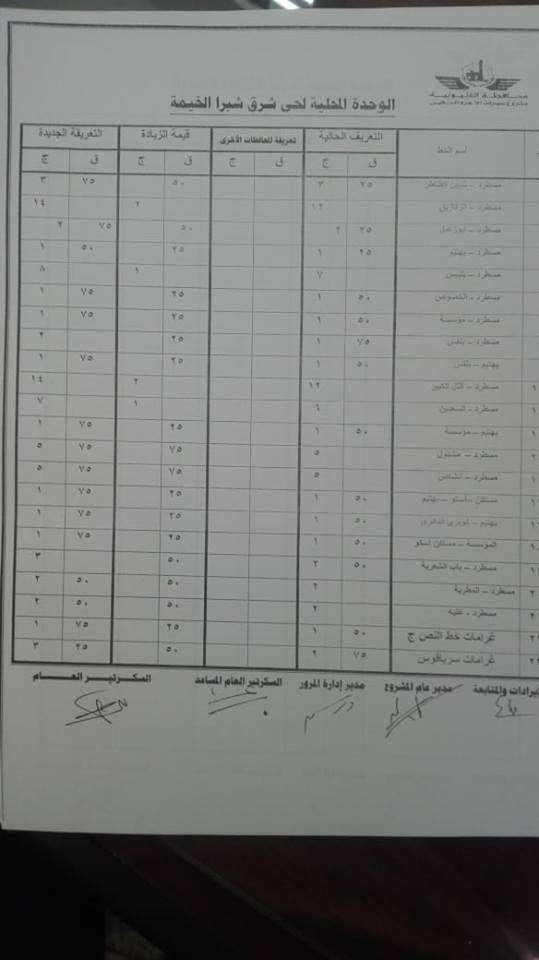 محافظة القليوبية
الوحدة المحلية لحى شرق شبرا الخيمة
اسم الخط التعريف الحالية تعريفة للمحافظات الأخرى قيمة الزيادة التعريفة الجديدة
ق ج ق ج ق ج ق ج
مسطرد - شبين القناطر ٢٥ ٣ ٥٠ ٧٥ ٣
مسطرد - الزقازيق ١٢ ٢ ١٤
مسطرد - ابوزعبل ٢٥ ٢ ٥٠ ٧٥ ٢
مسطرد - بهتيم ٢٥ ١ ٢٥ ٥٠ ١
مسطرد - بلبيس ٧ ١ ٨
مسطرد - الخصوص ٥٠ ١ ٢٥ ٧٥ ١
مسطرد - مؤسسة ٥٠ ١ ٢٥ ٧٥ ١
مسطرد - بلقس ٧٥ ١ ٢٥ ٢
بهتيم - بلقس ٥٠ ١ ٢٥ ٧٥ ١
مسطرد - التل الكبير ١٢ ٢ ١٤
مسطرد - السعديين ٦ ١ ٧
بهتيم - مؤسسة ٥٠ ١ ٢٥ ٧٥ ١
مسطرد - مشتول ٥ ٧٥ ٧٥ ٥
مسطرد - انشاص ٥ ٧٥ ٧٥ ٥
مساكن - اسكو - بهتيم ٥٠ ١ ٢٥ ٧٥ ١
بهتيم - كوبرى الدائرى ٥٠ ١ ٢٥ ٧٥ ١
المؤسسة - مساكن اسكو ٥٠ ١ ٢٥ ٧٥ ١
مسطرد - باب الشعرية ٥٠ ٢ ٥٠ ٣
مسطرد - المطرية ٢ ٥٠ ٥٠ ٢
مسطرد - عتبه ٢ ٥٠ ٥٠ ٢
غرامات خط النص ج ٥٠ ١ ٢٥ ٧٥ ١
غرامات سرياقوس ٧٥ ٢ ٥٠ ٢٥ ٣
والمتابعة مدير عام المشروع مدير إدارة المرور السكرتير العام المساعد السكرتير العام